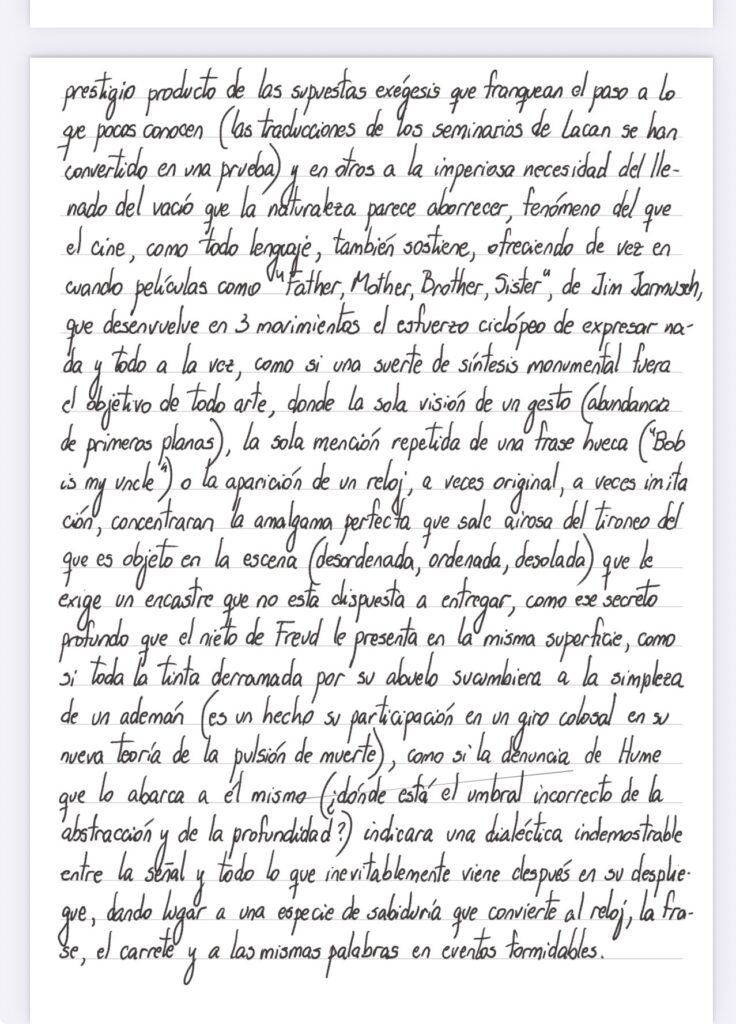 prestigio producto de las supuestas exégesis que franquean el paso a lo
qe pocos conocen (las traducciones de los seminarios de Lacan se han
convertido en una prueba) y en otros a la imperiosa necesidad del lle-
nado del vació que la naturaleza parece aborrecer, fenómeno del que
el cine, como todo lenguaje, también sostiene, ofreciendo de vez en
cuando películas como "Father, Mother, Brother, Sister", de Jim Jarmusch,
que desenvuelve en 3 movimientos el esfuerzo ciclópeo de expresar na-
da y todo a la vez, como si una suerte de síntesis monumental fuera
el objetivo de todo arte, donde la sola visión de un gesto (abundancia
de primeros planas), la sola mención repetida de una frase hueca ("Bob
is my uncle") o la aparición de un reloj, a veces original, a veces imita
ción, concentraran la amalgama perfecta que sale airosa del tironeo del
que es objeto en la escena (desordenada, ordenada, desolada) que le
exige un encastre que no está dispuesta a entregar, como ese secreto
profundo que el nieto de Freud le presenta en la misma superficie, como
si toda la tinta derramada por su abuelo sucumbiera a la simpleza
de un ademán (es un hecho su participación en un giro colosal en su
nueva teoría de la pulsión de muerte), como si la denuncia de Hume
que lo abarca a él mismo (¿dónde está el umbral incorrecto de la
abstracción y de la profundidad?) indicara una dialéctica indemostrable
entre la señal y todo lo que inevitablemente viene después en su desplie-
gue, dando lugar a una especie de sabiduría que convierte al reloj, la fra-
se, el carrete y a las mismas palabras en eventos formidables.